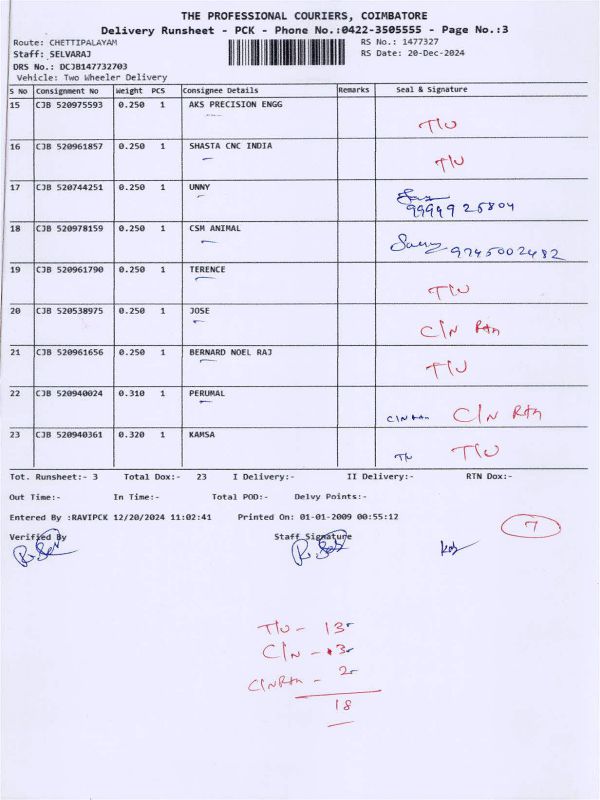 THE PROFESSIONAL COURIERS, COIMBATORE
Delivery Runsheet - PCK - Phone No.:0422-3505555 - Page No.:3
Route: CHETTIPALAYAM RS No.: 1477327
Staff: SELVARAJ RS Date: 20-Dec-2024
DRS No.: DCJB147732703
Vehicle: Two Wheeler Delivery
S No Consignment No Weight PCS Consignee Details Remarks Seal & Signature
15 CJB 520975593 0.250 1 AKS PRECISION ENGG
T/U
16 CJB 520961857 0.250 1 SHASTA CNC INDIA
T/U
17 CJB 520744251 0.250 1 UNNY
99949 25804
18 CJB 520978159 0.250 1 CSM ANIMAL
9745002482
19 CJB 520961790 0.250 1 TERENCE
T/U
20 CJB 520538975 0.250 1 JOSE
C/N RTN
21 CJB 520961656 0.250 1 BERNARD NOEL RAJ
T/U
22 CJB 520940024 0.310 1 PERUMAL
C/N RTN C/N RTN
23 CJB 520940361 0.320 1 KAMSA
T/U T/U
Tot. Runsheet:- 3 Total Dox:- 23 I Delivery:- II Delivery:- RTN Dox:-
Out Time:- In Time:- Total POD:- Delvy Points:-
Entered By :RAVIPCK 12/20/2024 11:02:41 Printed On: 01-01-2009 00:55:12
7
Verified By Staff Signature
T/U - 13
C/N - 3
C/N RTN - 2
18